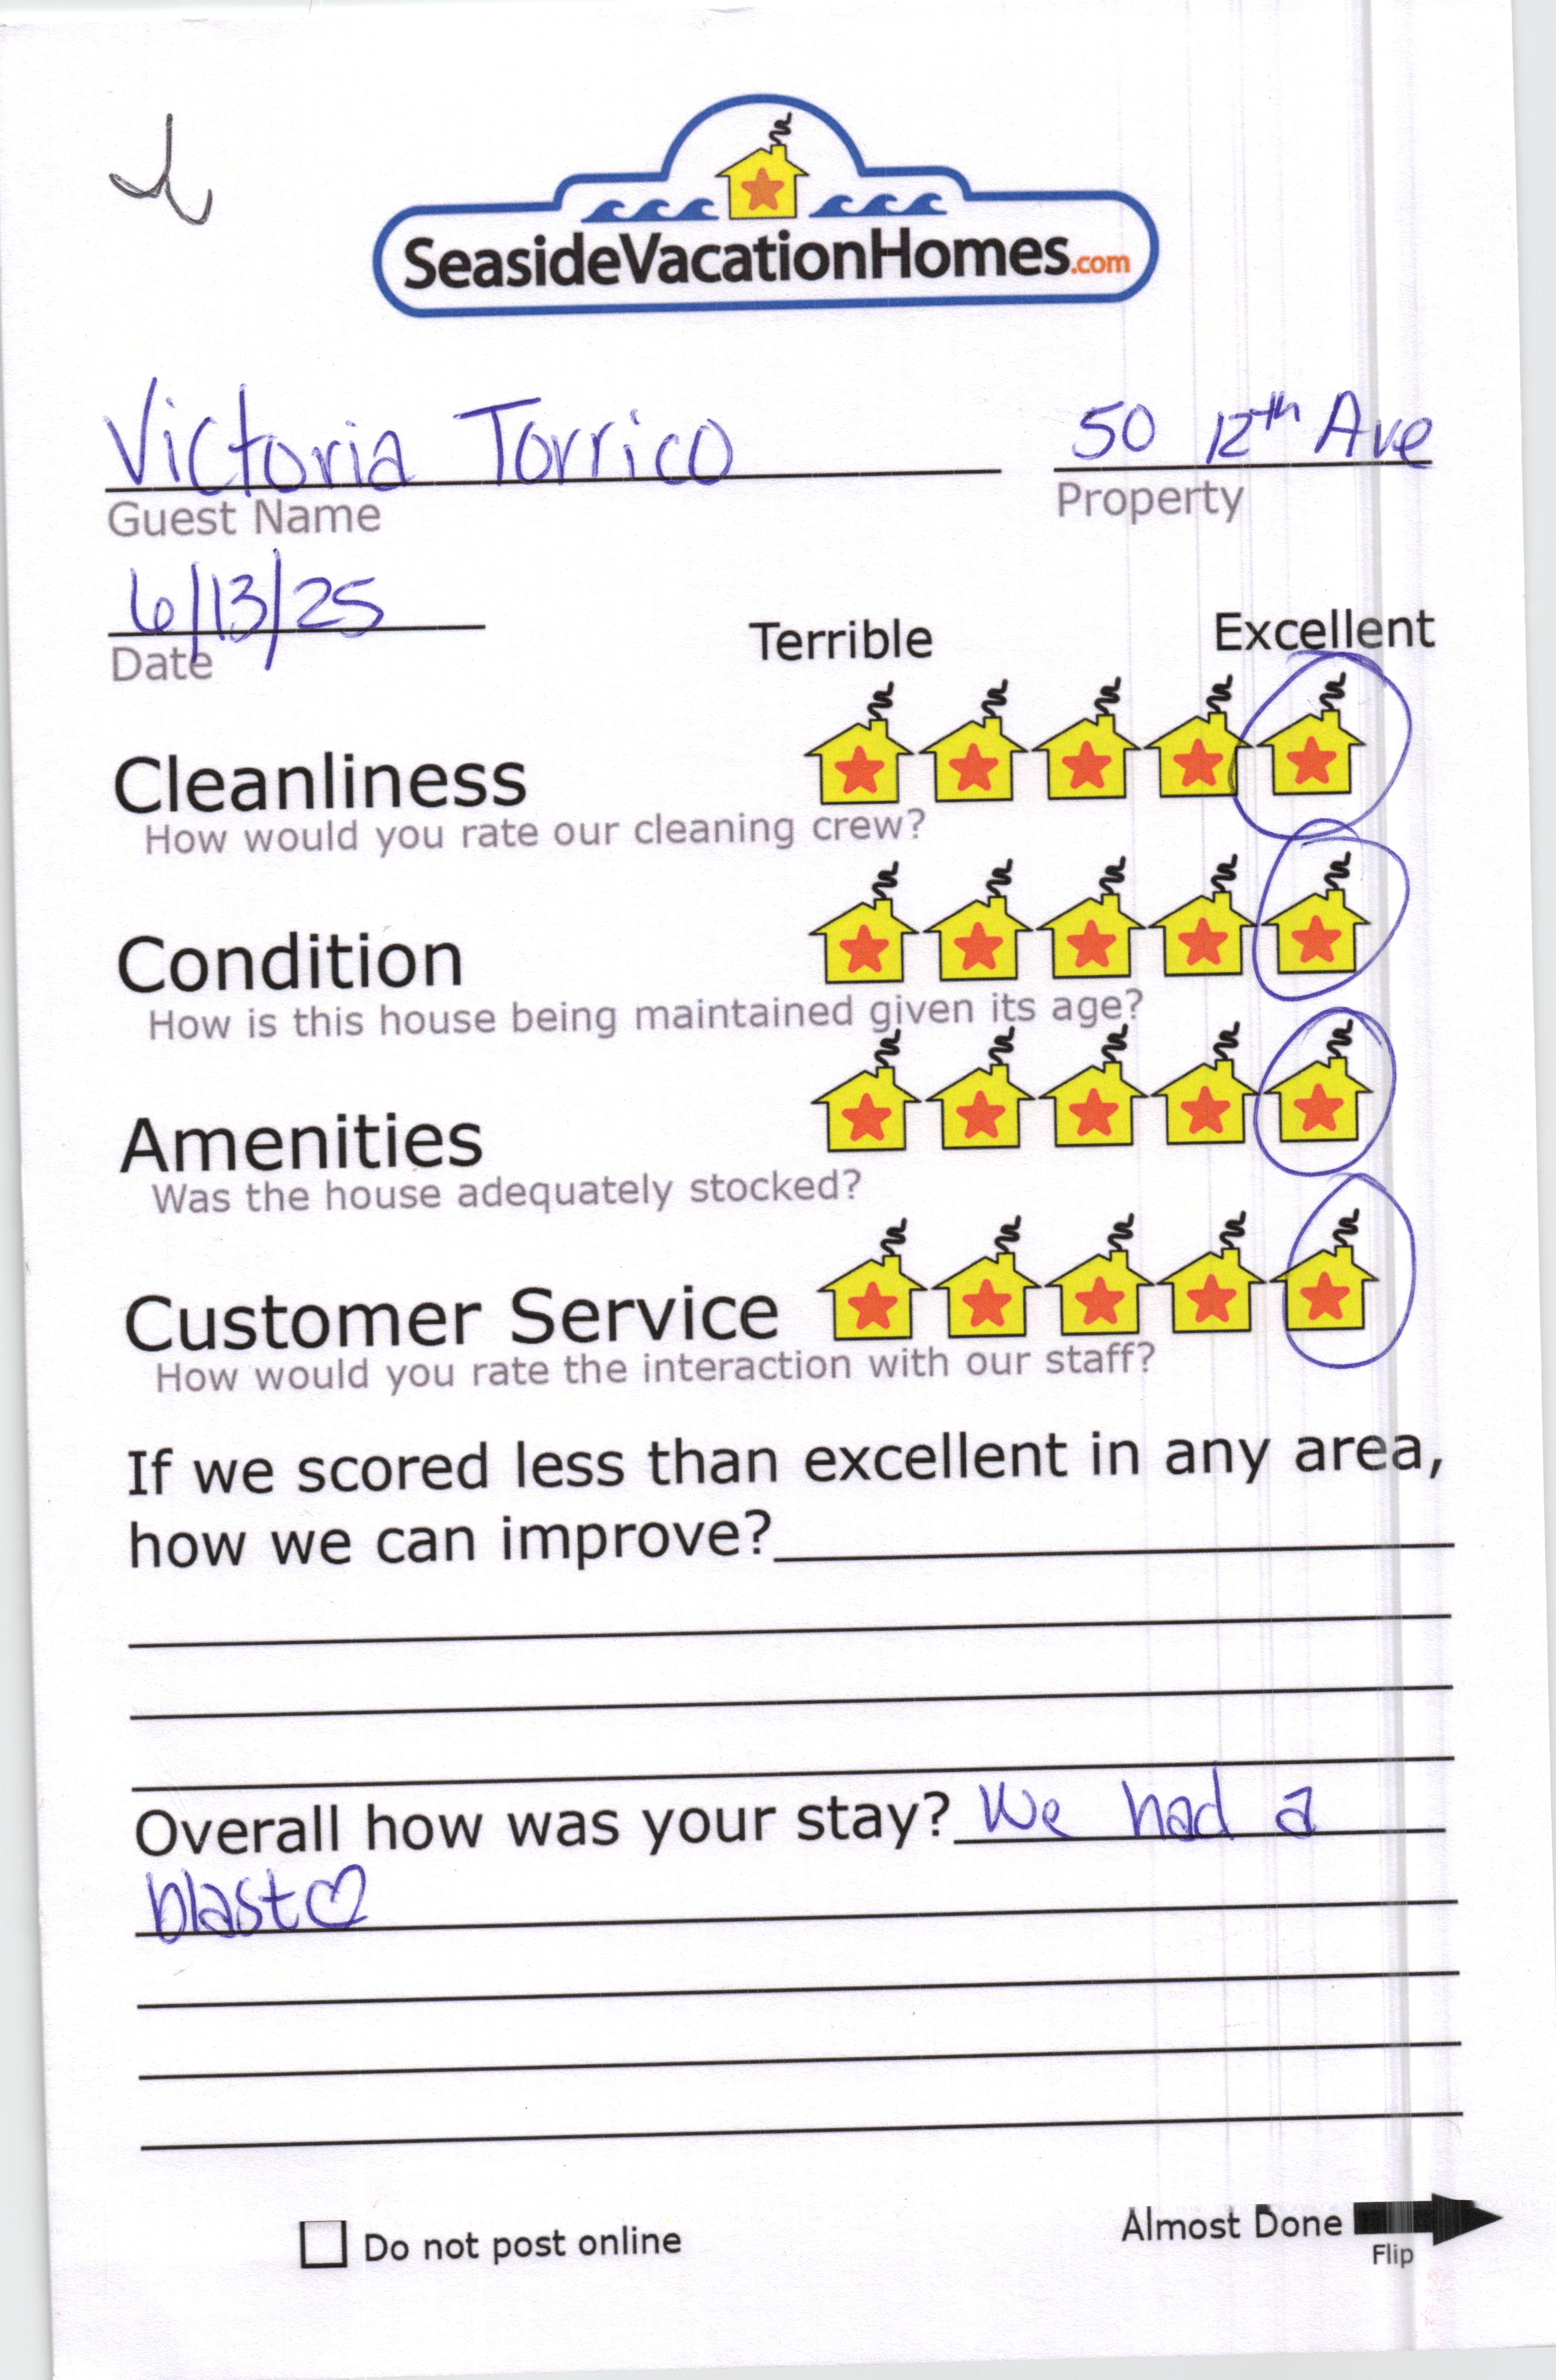 SeasideVacationHomes.com
Victoria Torrico 50 12th Ave
Guest Name Property
6/13/25
Date
Terrible Excellent
Cleanliness
How would you rate our cleaning crew?
Condition
How is this house being maintained given its age?
Amenities
Was the house adequately stocked?
Customer Service
How would you rate the interaction with our staff?
If we scored less than excellent in any area,
how we can improve?
Overall how was your stay? We had a
blast♡
Do not post online
Almost Done
Flip